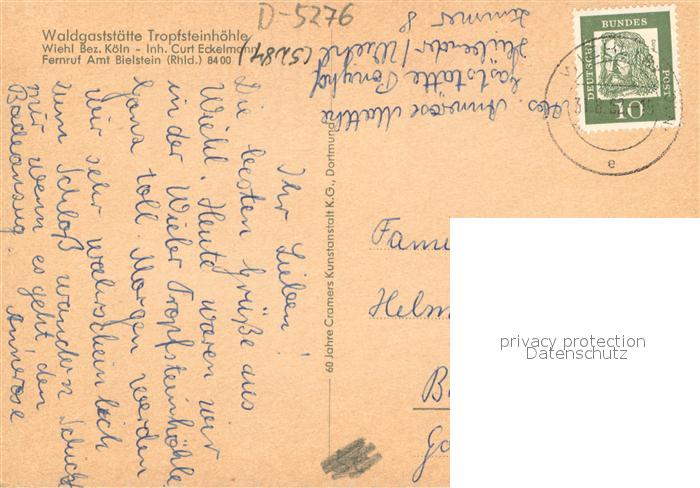 D-5276
Waldgaststätte Tropfsteinhöhle
Wiehl Bez. Köln - Inh. Curt Eckelmann
Fernruf Amt Bielstein (Rhld.) 8400
(5284)
Abs. Annerose
Gaststätte Ponyhof
/ Wiehl
Zimmer 8
DEUTSCHE BUNDESPOST
10
e
Ihr Lieben!
Die besten Grüße aus
Wiehl. Heute waren wir
in der Wiehler Tropfsteinhöhle.
Ganz toll. Morgen werden
wir sehr wahrscheinlich
zum Schloß wandern. Schickt
mir, wenn es geht, den
Badeanzug. Annerose
60 Jahre Cramers Kunstanstalt K.G., Dortmund
Fam
Helm
privacy protection
Datenschutz